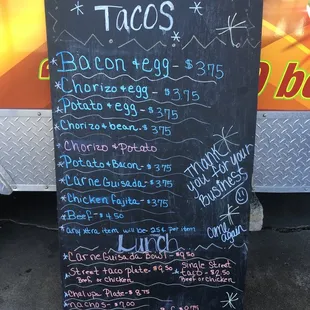 TACOS
*Bacon + egg - $3.75
*Chorizo + egg - $3.75
*Potato + egg - $3.75
*Chorizo + bean - $3.75
*Chorizo + Potato
*Potato + Bacon - $3.75
*Carne Guisada - $3.75
*Chicken Fajita - $3.75
*Beef - $4.50
*any xtra item will be 25¢ per item
Thank
you for your
business
come
again
Lunch
*Carne Guisada bowl - $9.50
*Street taco plate - $9.50
Beef or chicken
*Single Street
taco - $2.50
Beef or Chicken
*Chalupa Plate - $8.75
*nachos - $7.00